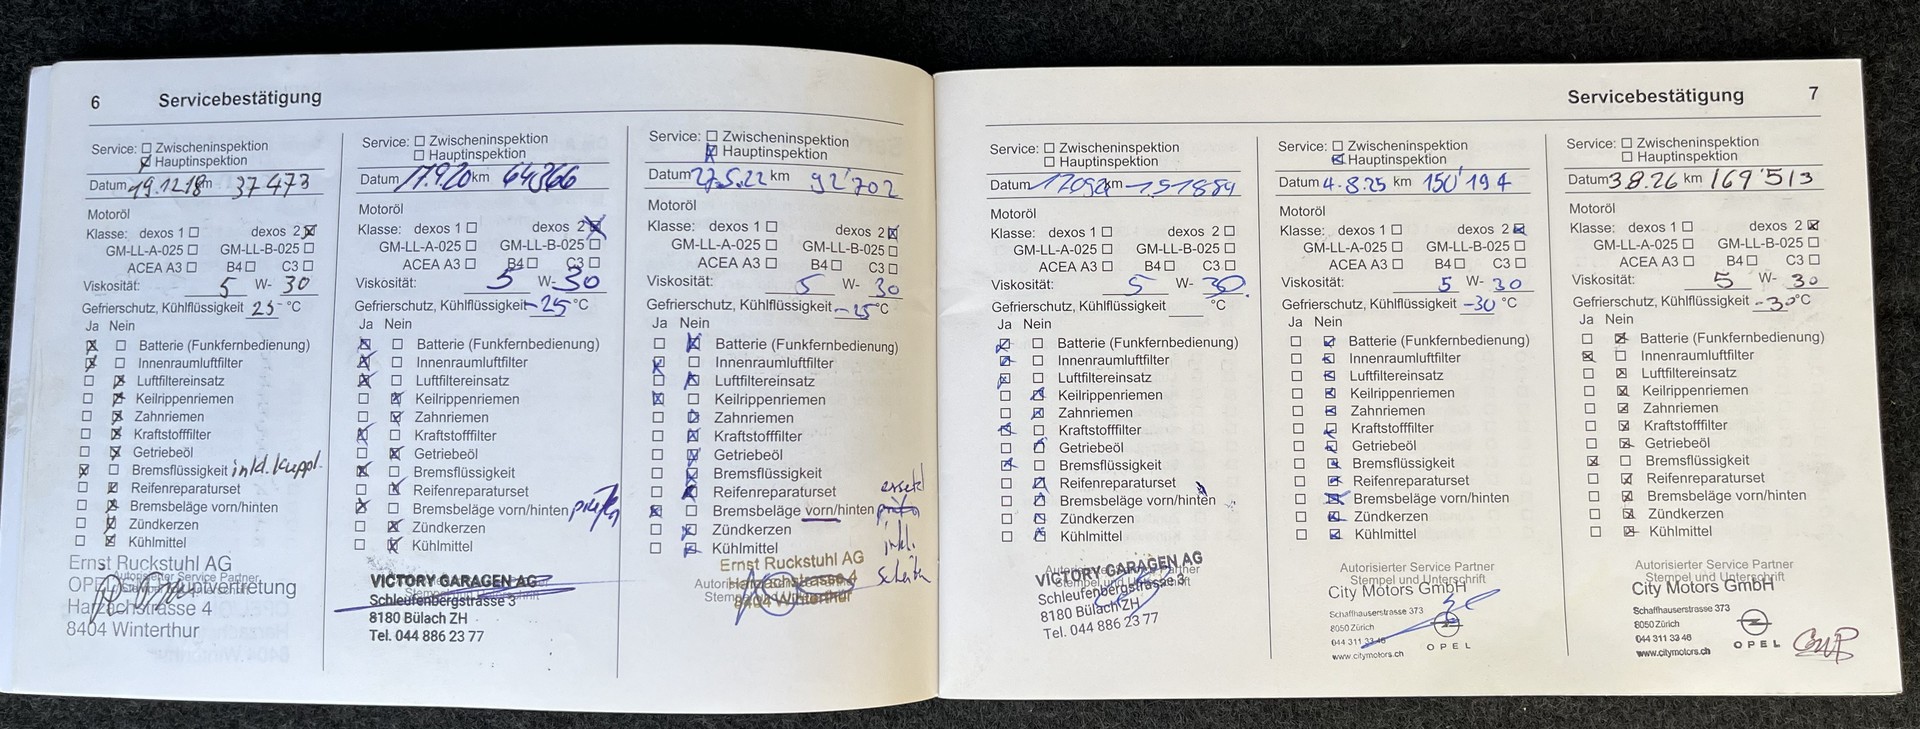 6 Servicebestätigung
Service: ☐ Zwischeninspektion
☒ Hauptinspektion
Datum 19.12.18 km 37473
Motoröl
Klasse: dexos 1 ☐ dexos 2 ☒
GM-LL-A-025 ☐ GM-LL-B-025 ☐
ACEA A3 ☐ B4 ☐ C3 ☐
Viskosität: 5 W- 30
Gefrierschutz, Kühlflüssigkeit 25- °C
Ja Nein
☒ ☐ Batterie (Funkfernbedienung)
☒ ☐ Innenraumluftfilter
☐ ☒ Luftfiltereinsatz
☐ ☒ Keilrippenriemen
☐ ☒ Zahnriemen
☐ ☒ Kraftstofffilter
☐ ☒ Getriebeöl
☒ ☐ Bremsflüssigkeit inkl. Kuppl.
☐ ☒ Reifenreparaturset
☐ ☒ Bremsbeläge vorn/hinten
☐ ☒ Zündkerzen
☐ ☒ Kühlmittel
Autorisierter Service Partner
Ernst Ruckstuhl AG
Harzachstrasse 4
8404 Winterthur
Service: ☐ Zwischeninspektion
☐ Hauptinspektion
Datum 17.9.20 km 64366
Motoröl
Klasse: dexos 1 ☐ dexos 2 ☒
GM-LL-A-025 ☐ GM-LL-B-025 ☐
ACEA A3 ☐ B4 ☐ C3 ☐
Viskosität: 5 W- 30
Gefrierschutz, Kühlflüssigkeit -25 °C
Ja Nein
☒ ☐ Batterie (Funkfernbedienung)
☒ ☐ Innenraumluftfilter
☒ ☐ Luftfiltereinsatz
☐ ☒ Keilrippenriemen
☐ ☒ Zahnriemen
☒ ☐ Kraftstofffilter
☐ ☒ Getriebeöl
☒ ☐ Bremsflüssigkeit
☐ ☒ Reifenreparaturset
☒ ☐ Bremsbeläge vorn/hinten prüfen
☐ ☒ Zündkerzen
☐ ☒ Kühlmittel
VICTORY GARAGEN AG
Schleufenbergstrasse 3
8180 Bülach ZH
Tel. 044 886 23 77
Service: ☐ Zwischeninspektion
☒ Hauptinspektion
Datum 27.5.22 km 92'702
Motoröl
Klasse: dexos 1 ☐ dexos 2 ☒
GM-LL-A-025 ☐ GM-LL-B-025 ☐
ACEA A3 ☐ B4 ☐ C3 ☐
Viskosität: 5 W- 30
Gefrierschutz, Kühlflüssigkeit -25 °C
Ja Nein
☐ ☒ Batterie (Funkfernbedienung)
☒ ☐ Innenraumluftfilter
☐ ☒ Luftfiltereinsatz
☒ ☐ Keilrippenriemen
☐ ☒ Zahnriemen
☐ ☒ Kraftstofffilter
☐ ☒ Getriebeöl
☐ ☒ Bremsflüssigkeit
☐ ☒ Reifenreparaturset
☒ ☐ Bremsbeläge vorn/hinten
inkl.
☐ ☒ Zündkerzen
☐ ☒ Kühlmittel
Ernst Ruckstuhl AG
Harzachstrasse 4
8404 Winterthur
Servicebestätigung 7
Service: ☐ Zwischeninspektion
☐ Hauptinspektion
Datum km
Motoröl
Klasse: dexos 1 ☐ dexos 2 ☐
GM-LL-A-025 ☐ GM-LL-B-025 ☐
ACEA A3 ☐ B4 ☐ C3 ☐
Viskosität: 5 W- 30.
Gefrierschutz, Kühlflüssigkeit °C
Ja Nein
☒ ☐ Batterie (Funkfernbedienung)
☒ ☐ Innenraumluftfilter
☒ ☐ Luftfiltereinsatz
☐ ☒ Keilrippenriemen
☐ ☒ Zahnriemen
☒ ☐ Kraftstofffilter
☐ ☒ Getriebeöl
☒ ☐ Bremsflüssigkeit
☐ ☒ Reifenreparaturset
☐ ☒ Bremsbeläge vorn/hinten
☐ ☒ Zündkerzen
☐ ☒ Kühlmittel
VICTORY GARAGEN AG
Schleufenbergstrasse 3
8180 Bülach ZH
Tel. 044 886 23 77
Service: ☐ Zwischeninspektion
☒ Hauptinspektion
Datum 4.8.25 km 150'194
Motoröl
Klasse: dexos 1 ☐ dexos 2 ☒
GM-LL-A-025 ☐ GM-LL-B-025 ☐
ACEA A3 ☐ B4 ☐ C3 ☐
Viskosität: 5 W- 30
Gefrierschutz, Kühlflüssigkeit -30 °C
Ja Nein
☐ ☒ Batterie (Funkfernbedienung)
☐ ☒ Innenraumluftfilter
☐ ☒ Luftfiltereinsatz
☐ ☒ Keilrippenriemen
☐ ☒ Zahnriemen
☐ ☒ Kraftstofffilter
☐ ☒ Getriebeöl
☐ ☒ Bremsflüssigkeit
☐ ☒ Reifenreparaturset
☐ ☒ Bremsbeläge vorn/hinten
☐ ☒ Zündkerzen
☐ ☒ Kühlmittel
Autorisierter Service Partner
Stempel und Unterschrift
City Motors GmbH
Schaffhauserstrasse 373
8050 Zürich
044 311 33 46
www.citymotors.ch
OPEL
Service: ☐ Zwischeninspektion
☐ Hauptinspektion
Datum 3.8.26 km 169'513
Motoröl
Klasse: dexos 1 ☐ dexos 2 ☒
GM-LL-A-025 ☐ GM-LL-B-025 ☐
ACEA A3 ☐ B4 ☐ C3 ☐
Viskosität: 5 W- 30
Gefrierschutz, Kühlflüssigkeit -30 °C
Ja Nein
☐ ☒ Batterie (Funkfernbedienung)
☒ ☐ Innenraumluftfilter
☐ ☒ Luftfiltereinsatz
☐ ☒ Keilrippenriemen
☐ ☒ Zahnriemen
☐ ☒ Kraftstofffilter
☐ ☒ Getriebeöl
☒ ☐ Bremsflüssigkeit
☐ ☒ Reifenreparaturset
☐ ☒ Bremsbeläge vorn/hinten
☐ ☒ Zündkerzen
☐ ☒ Kühlmittel
Autorisierter Service Partner
Stempel und Unterschrift
City Motors GmbH
Schaffhauserstrasse 373
8050 Zürich
044 311 33 46
www.citymotors.ch
OPEL